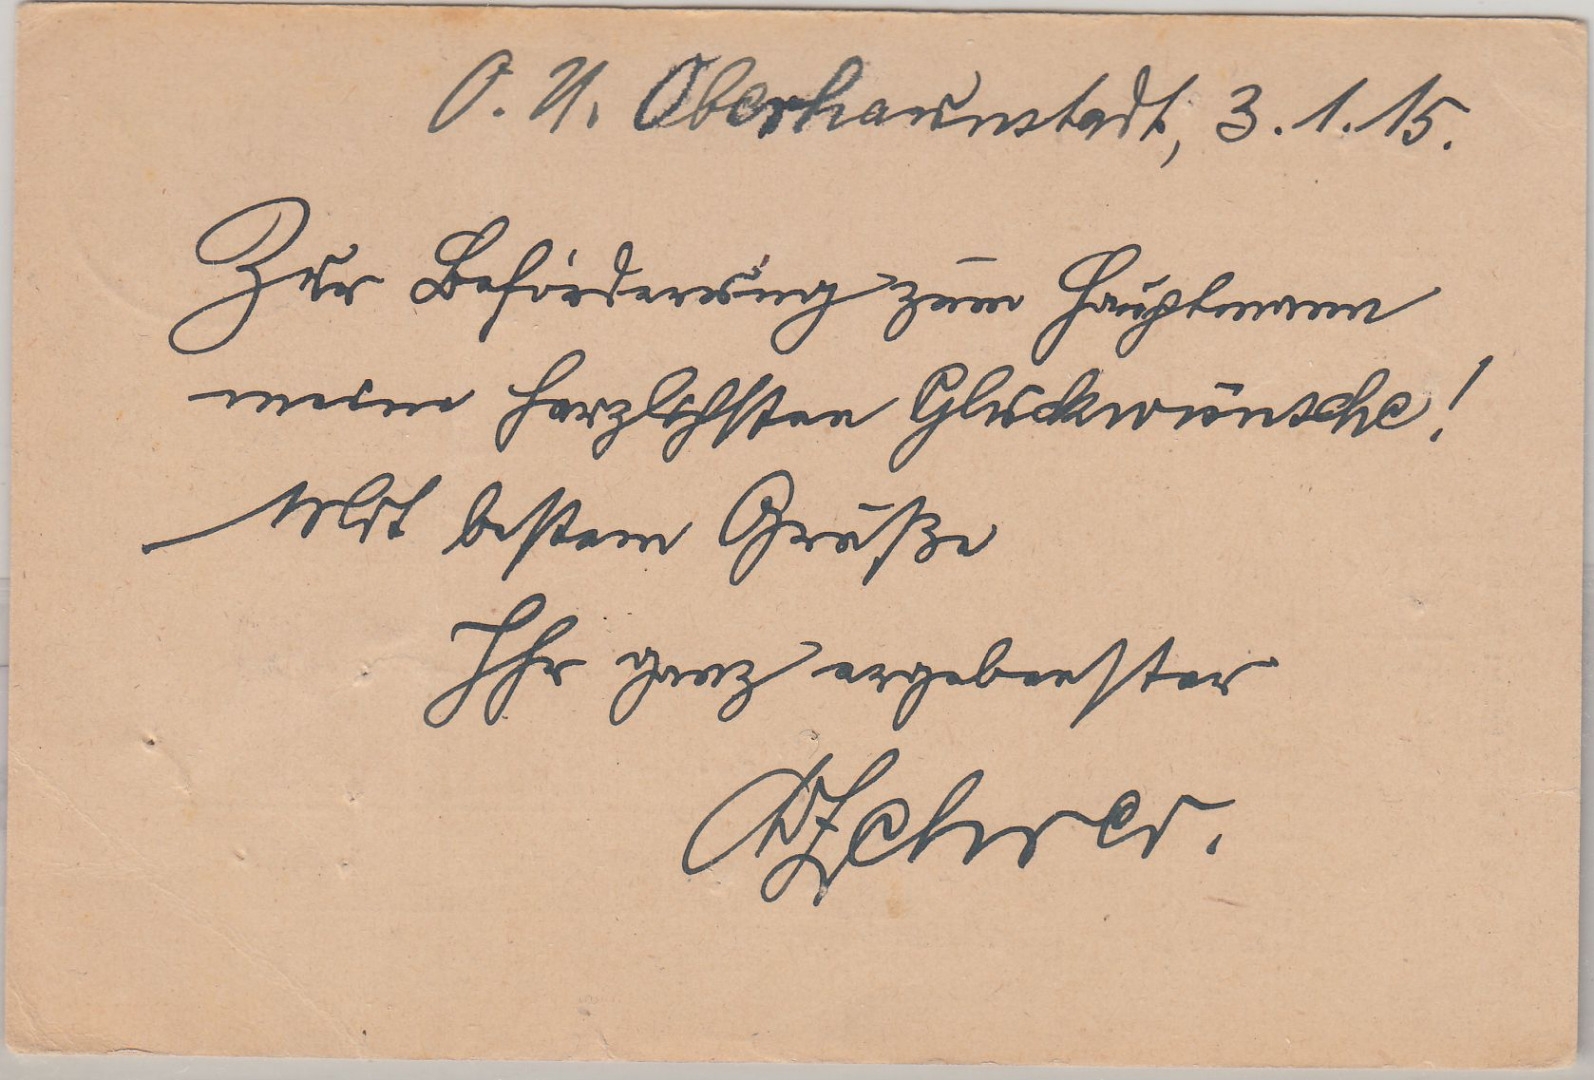 O. U. Oberhaunstadt, 3.1.15.
Zur Beförderung zum Hauptmann
meine herzlichsten Glückwünsche!
Mit bestem Grüße
Ihr ganz ergebenster